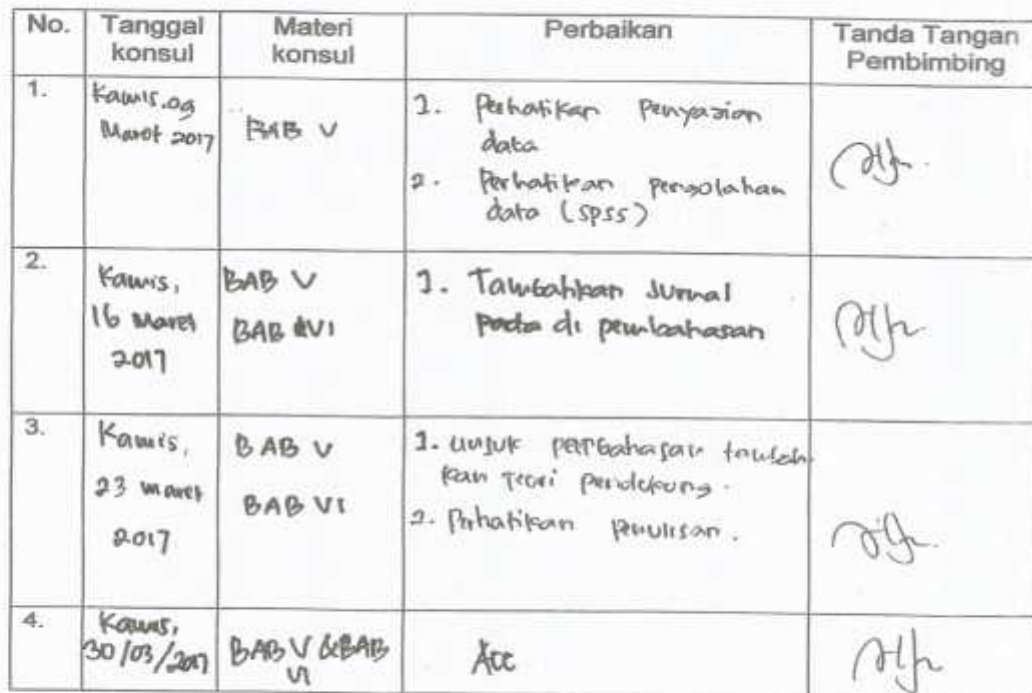 No. Tanggal konsul Materi konsul Perbaikan Tanda Tangan Pembimbing
1.
Kamis, 09
Maret 2017
BAB V
1. Perhatikan Penyajian
data
2. Perhatikan pengolahan
data (SPSS)
2.
Kamis,
16 Maret
2017
BAB V
BAB VI
1. Tambahkan Jurnal
pada di pembahasan
3.
Kamis,
23 maret
2017
BAB V
BAB VI
1. untuk pembahasan tambah
kan teori pendukung.
2. Perhatikan penulisan.
4.
Kamis,
30/03/2017
BAB V & BAB
VI
Acc